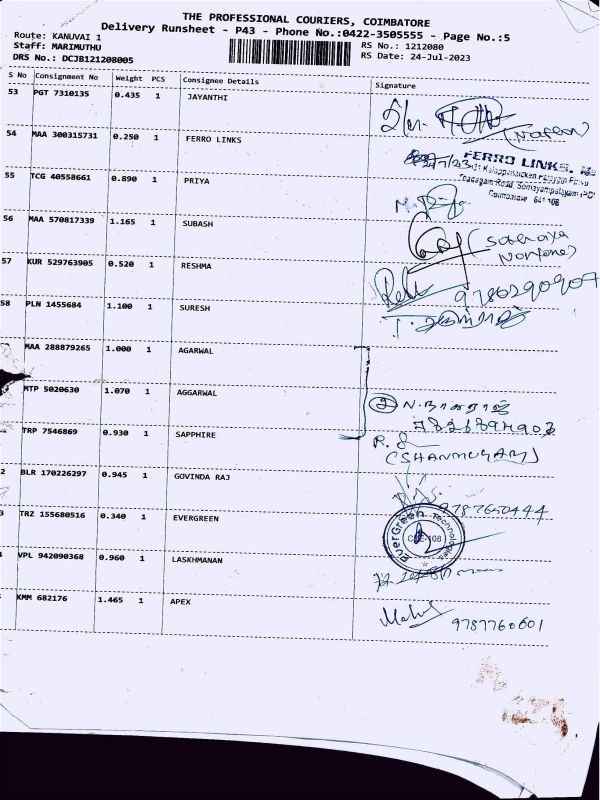 THE PROFESSIONAL COURIERS, COIMBATORE
Delivery Runsheet - P43 - Phone No.:0422-3505555 - Page No.:5
Route: KANUVAI 1
Staff: MARIMUTHU RS No.: 1212080
DRS No.: DCJB121208005 RS Date: 24-Jul-2023
S No Consignment No Weight PCS Consignee Details Signature
53 PGT 7310135 0.435 1 JAYANTHI
54 MAA 300315731 0.250 1 FERRO LINKS
FERRO LINKS,
55 TCG 40558661 0.890 1 PRIYA
Coimbatore 641 108
56 MAA 570817339 1.165 1 SUBASH
57 KUR 529763905 0.520 1 RESHMA
9780290907
58 PLN 1455684 1.100 1 SURESH
MAA 288879265 1.000 1 AGARWAL
MTP 5020630 1.070 1 AGGARWAL
N. நாகராஜ்
TRP 7546869 0.930 1 SAPPHIRE
(SHANMUGAM)
2 BLR 170226297 0.945 1 GOVINDA RAJ
9787650444
3 TRZ 155680516 0.340 1 EVERGREEN
EverGreen Technologies
VPL 942090368 0.960 1 LASKHMANAN
KMM 682176 1.465 1 APEX
9787760601